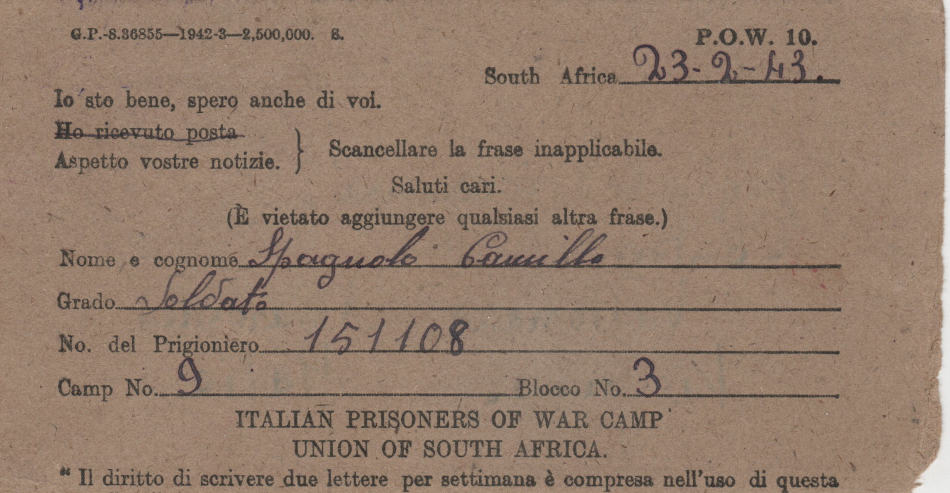 G.P.-S.36855—1942-3—2,500,000. S.
P.O.W. 10.
South Africa 23-2-43.
Io sto bene, spero anche di voi.
Ho ricevuto posta
Aspetto vostre notizie. } Scancellare la frase inapplicabile.
Saluti cari.
(È vietato aggiungere qualsiasi altra frase.)
Nome e cognome Spagnolo Camillo
Grado Soldato
No. del Prigioniero 151108
Camp No. 9 Blocco No. 3
ITALIAN PRISONERS OF WAR CAMP
UNION OF SOUTH AFRICA.
" Il diritto di scrivere due lettere per settimana è compresa nell'uso di questa